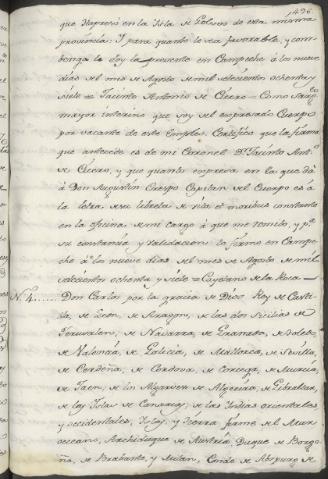 1496
que regresó en la Isla de Polvos de esta misma
provincia. Y para quanto le sea favorable, y com-
benga le doy la presente en Campeche à los nueve
dias del mes de Agosto de mil setecientos ochenta y
siete = Jacinto Antonio de Cicero = Como sargto
mayor interino que soy del expresado Cuerpo
por vacante de este Empleo. Certifico que la firma
que antecede es de mi Coronel Dn Jacinto Anto
de Cicero, y que quanto expresa en la que dá
à Don Augustin Crespo Capitan del Cuerpo es à
la letra, de su libreta de vita et moribus constante
en la oficina de mi cargo à que me remito, y pa
su constancia y validacion la firmo en Campe-
che à los nueve dias del mes de Agosto de mil
setecientos ochenta y siete = Cayetano de la Roca =
No 4. Don Carlos por la gracia de Dios Rey de Casti-
lla, de Leon, de Aragon, de las dos Sicilias de
Jerusalen, de Navarra, de Granada, de Toledo,
de Valencia, de Galicia, de Mallorca, de Sevilla,
de Cerdeña, de Cordova, de Corcega, de Murcia,
de Jaen, de los Algarves de Algecira, de Gibraltar,
de las Islas de Canarias, de las Indias orientales
y occidentales, Islas, y tierra firme del Mar
occeano, Archiduque de Austria, Duque de Borgo-
ña, de Brabante, y Milan, Conde de Abspurg de